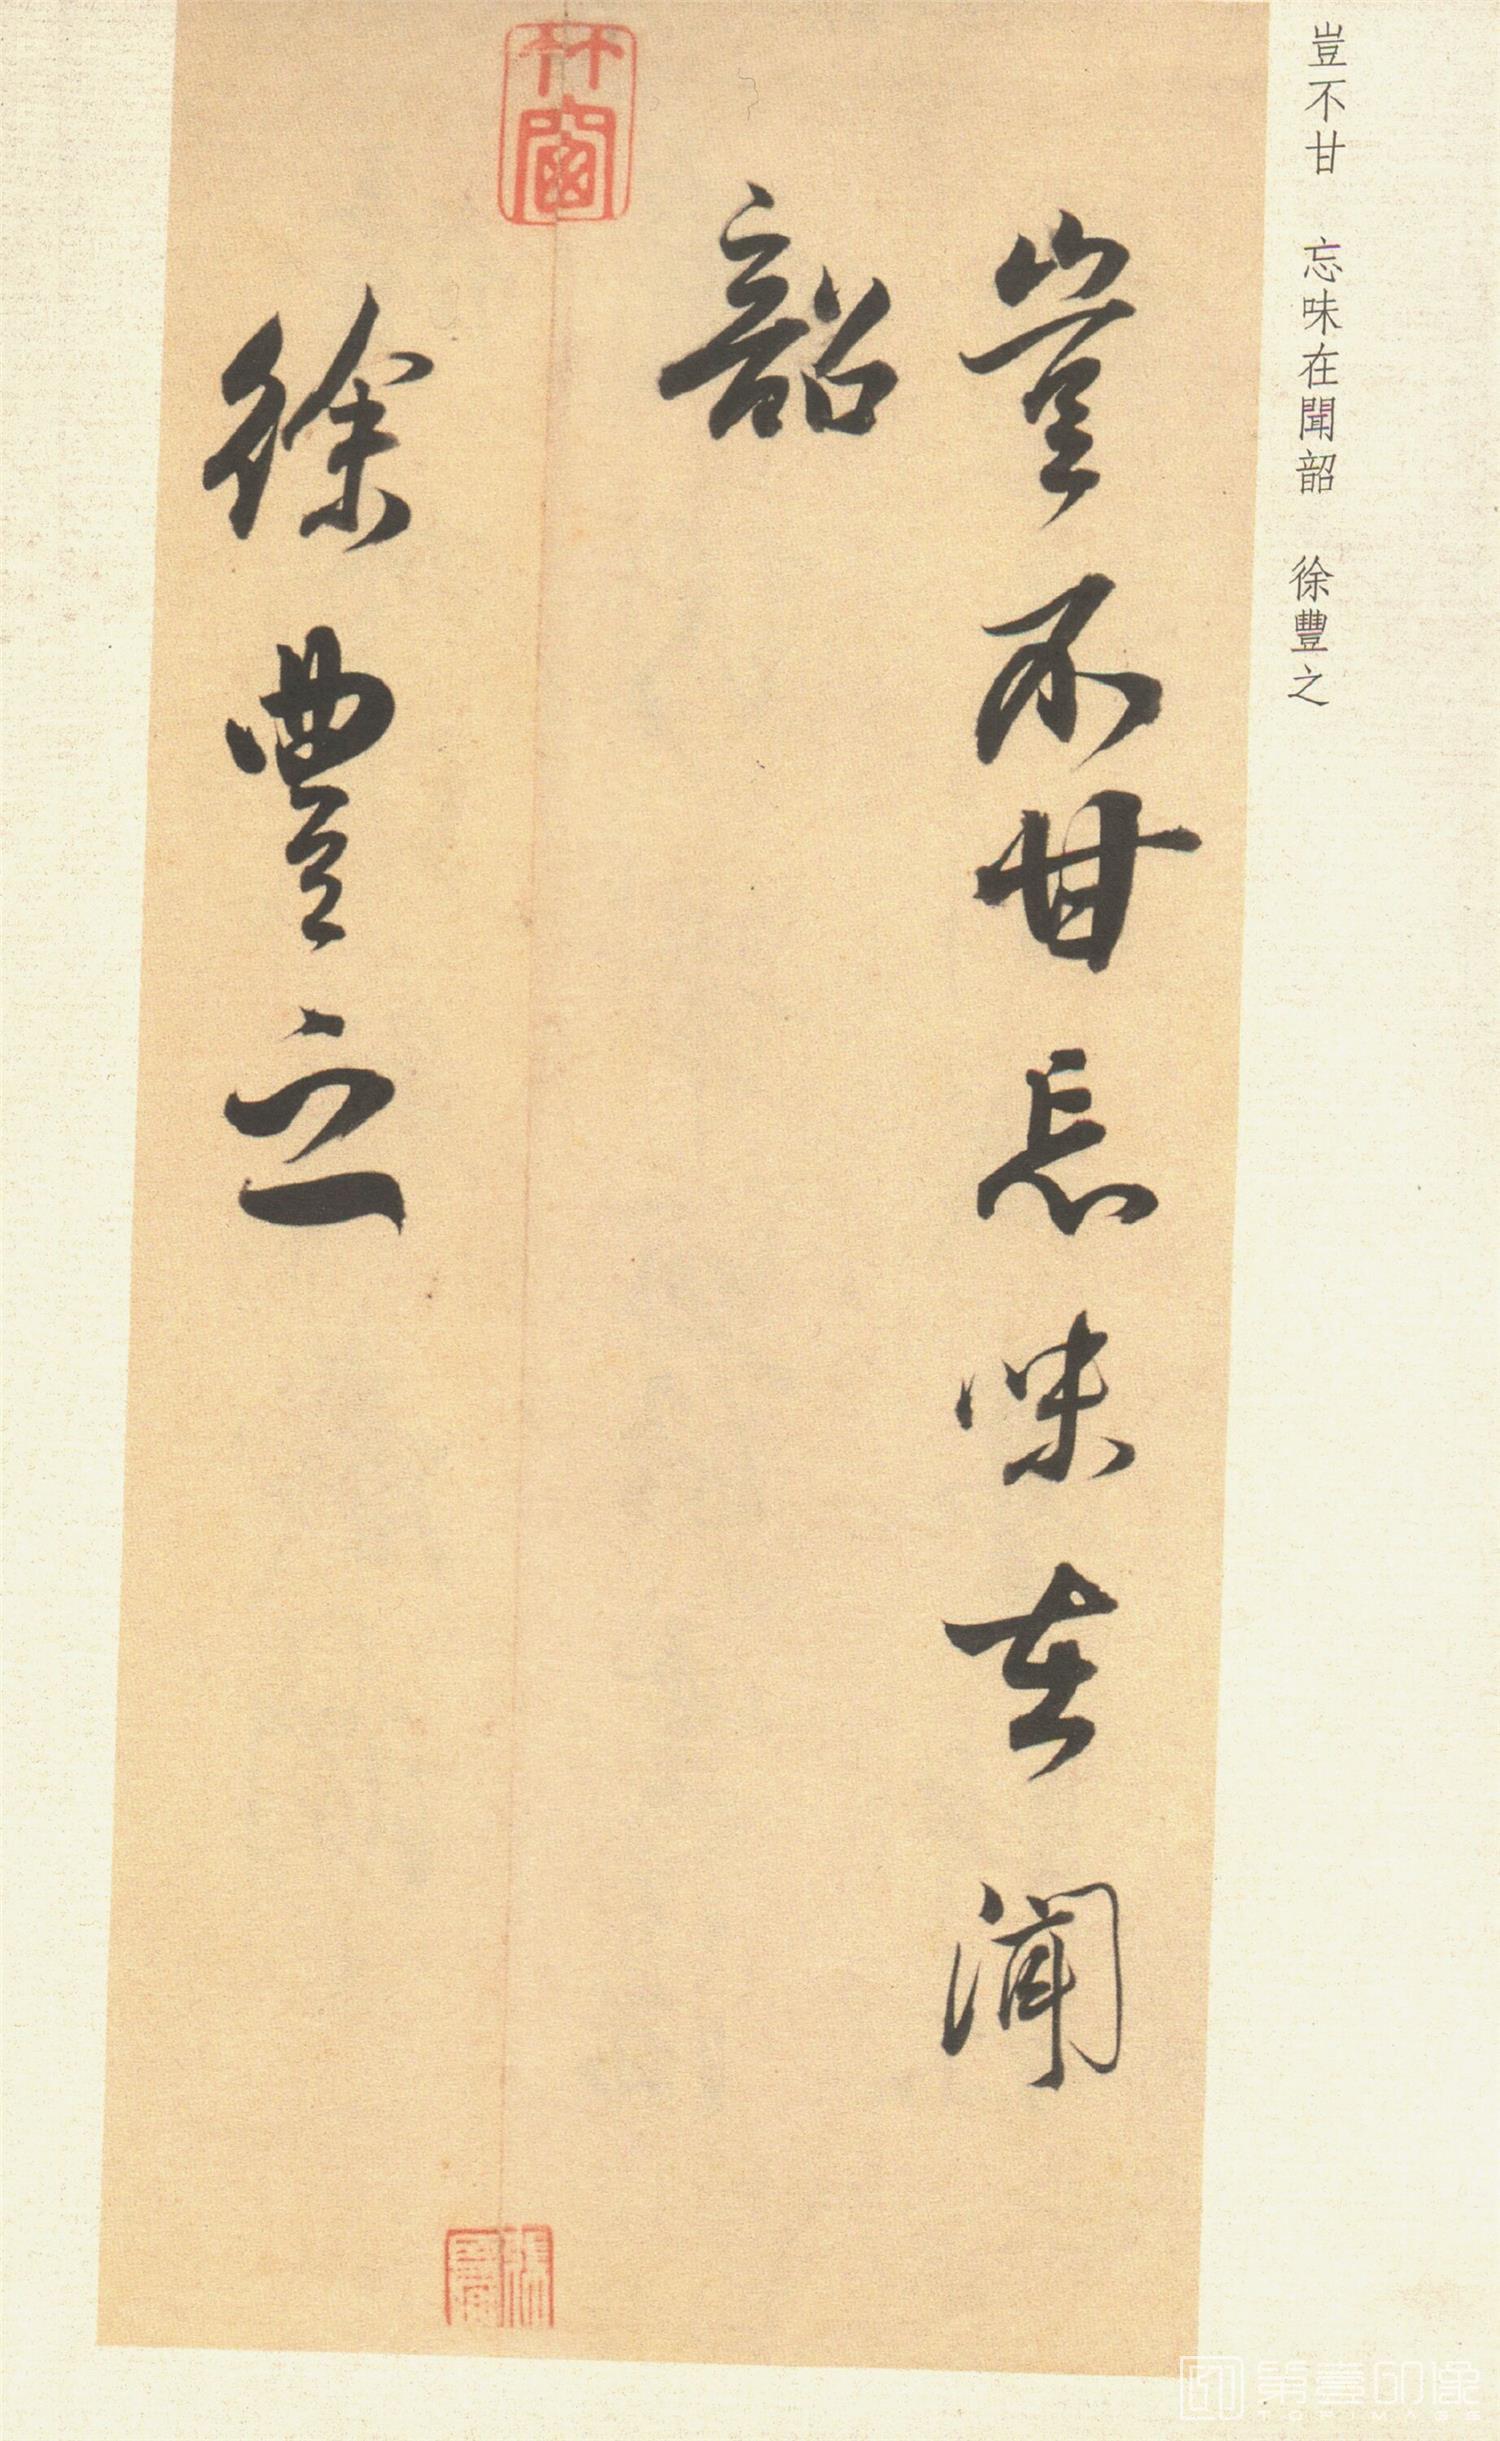 豈不甘 忘味在聞韶 徐豐之
豈不甘忘味在聞
韶
徐豐之
竹窗
第壹印像
TOPIMAGE